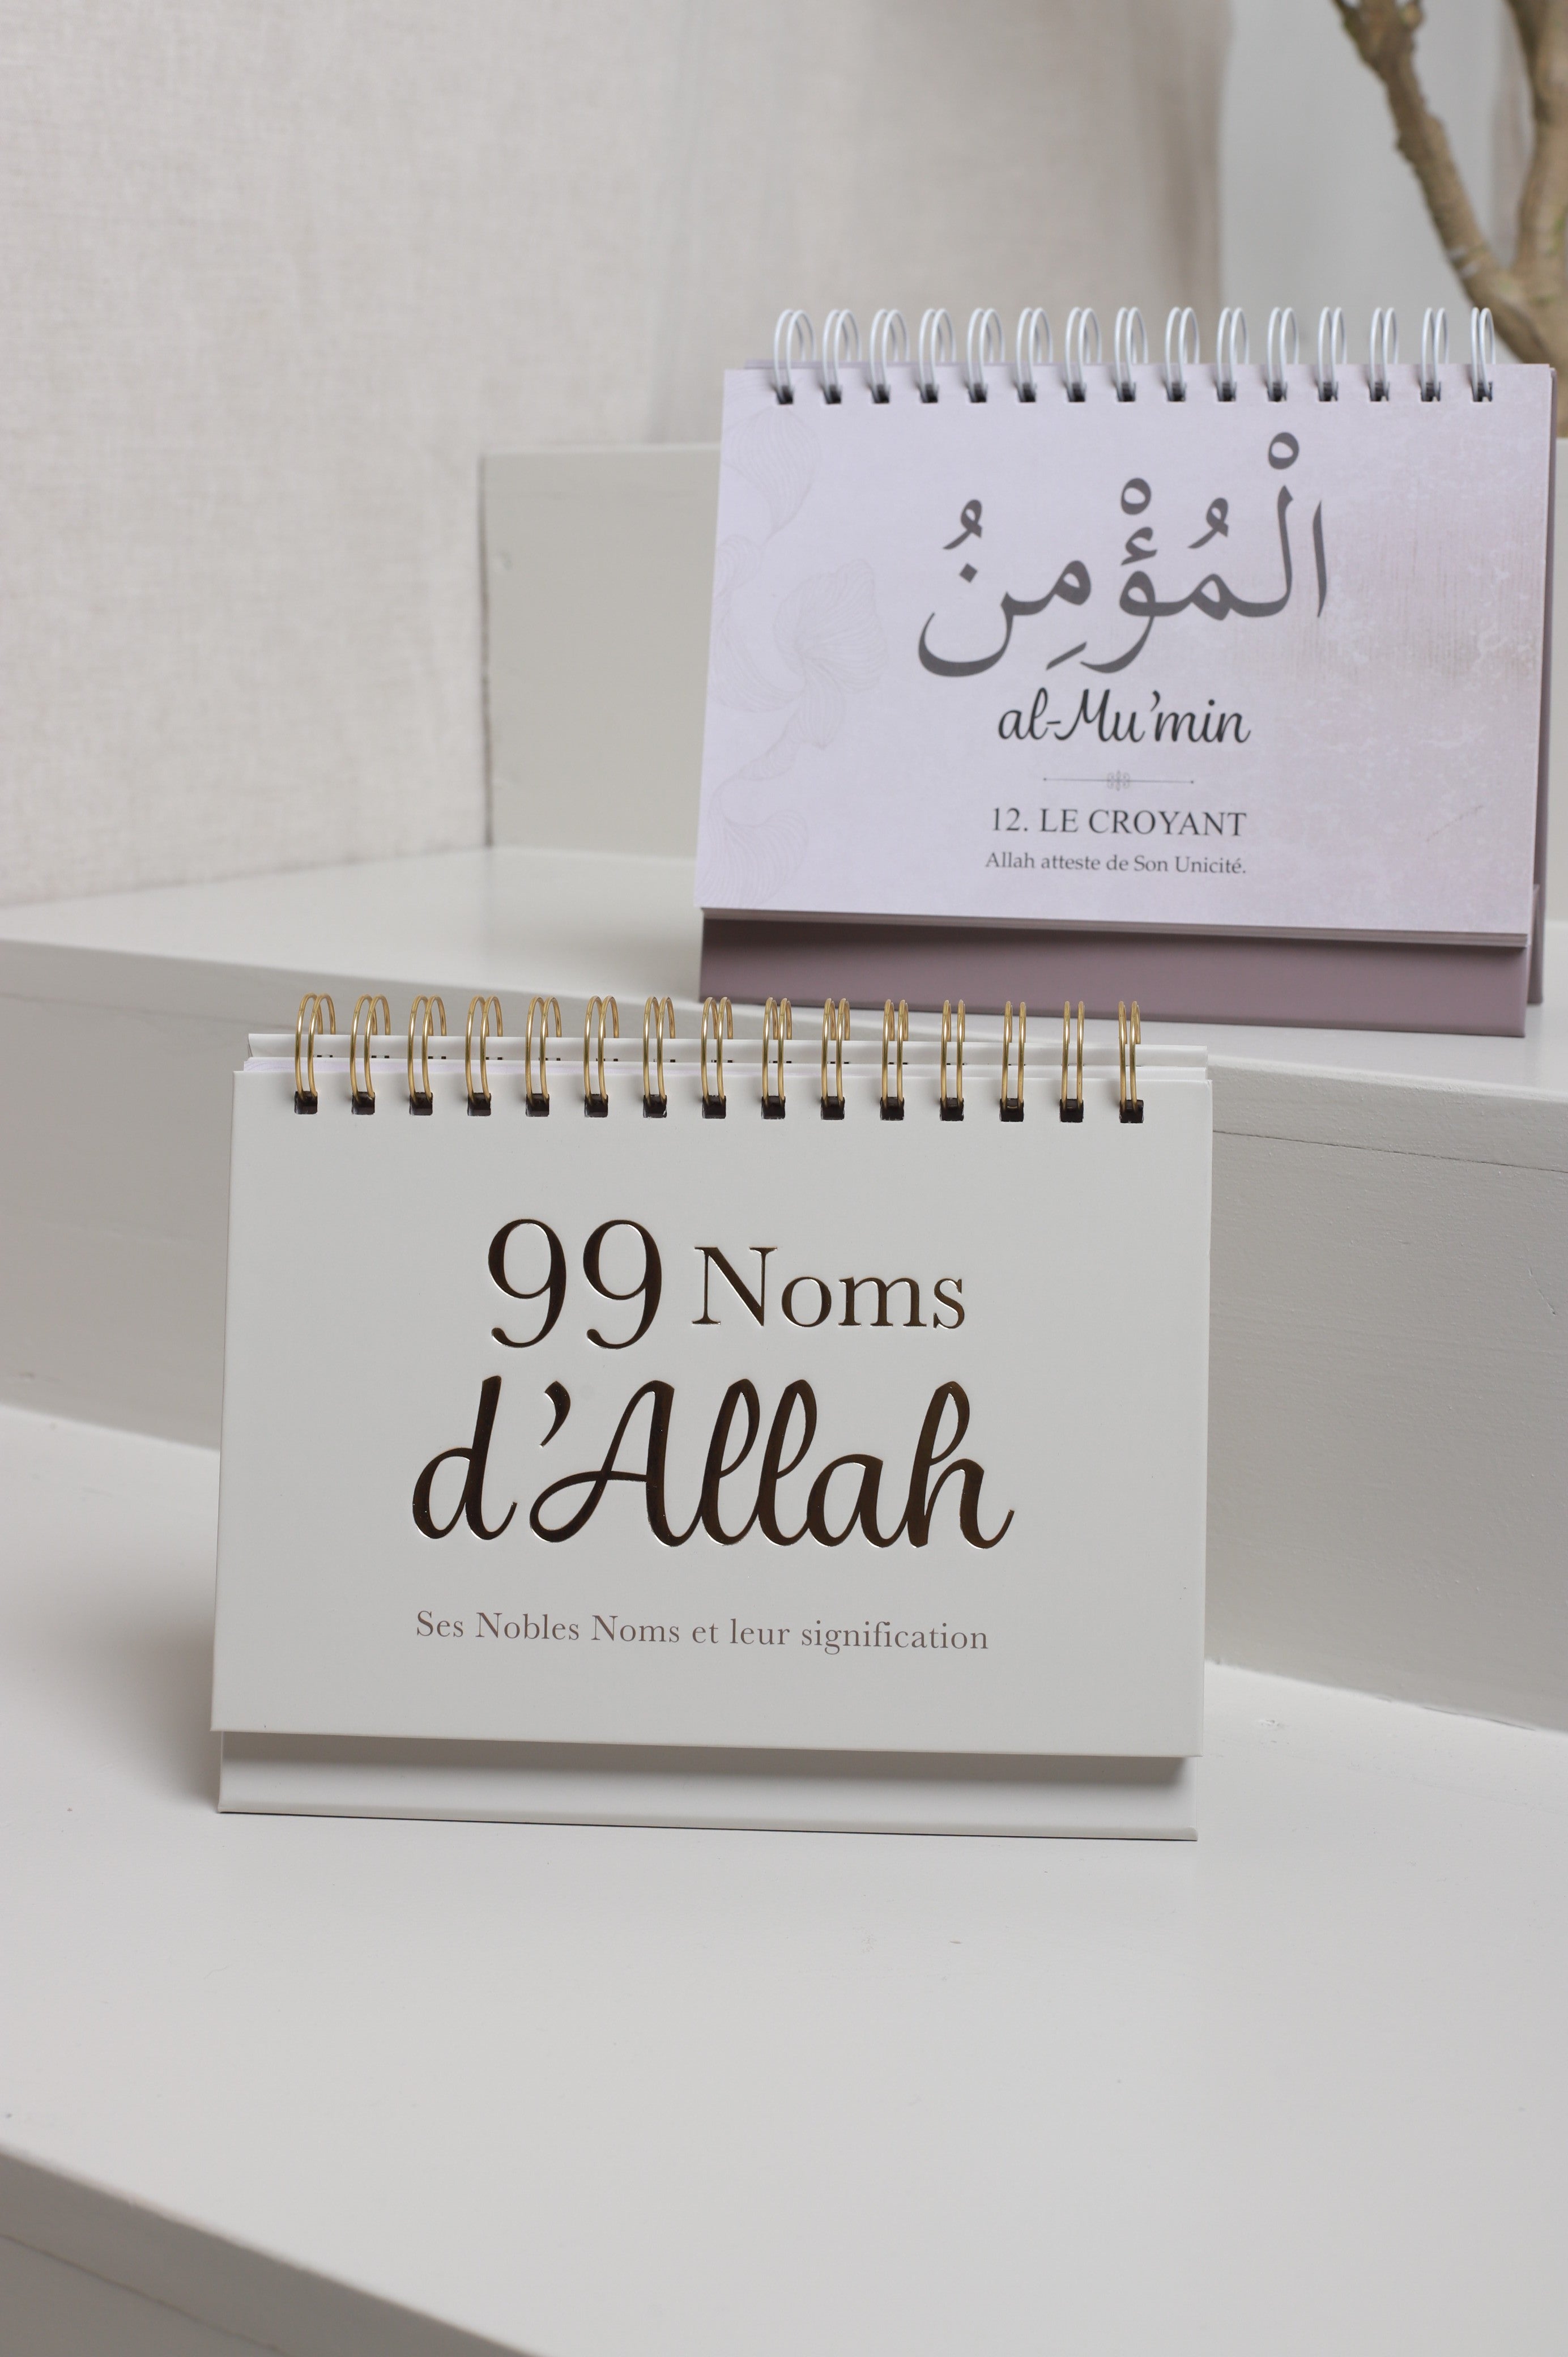 الْمُؤْمِنُ
al-Mu’min
12. LE CROYANT
Allah atteste de Son Unicité.
99 Noms
d’Allah
Ses Nobles Noms et leur signification